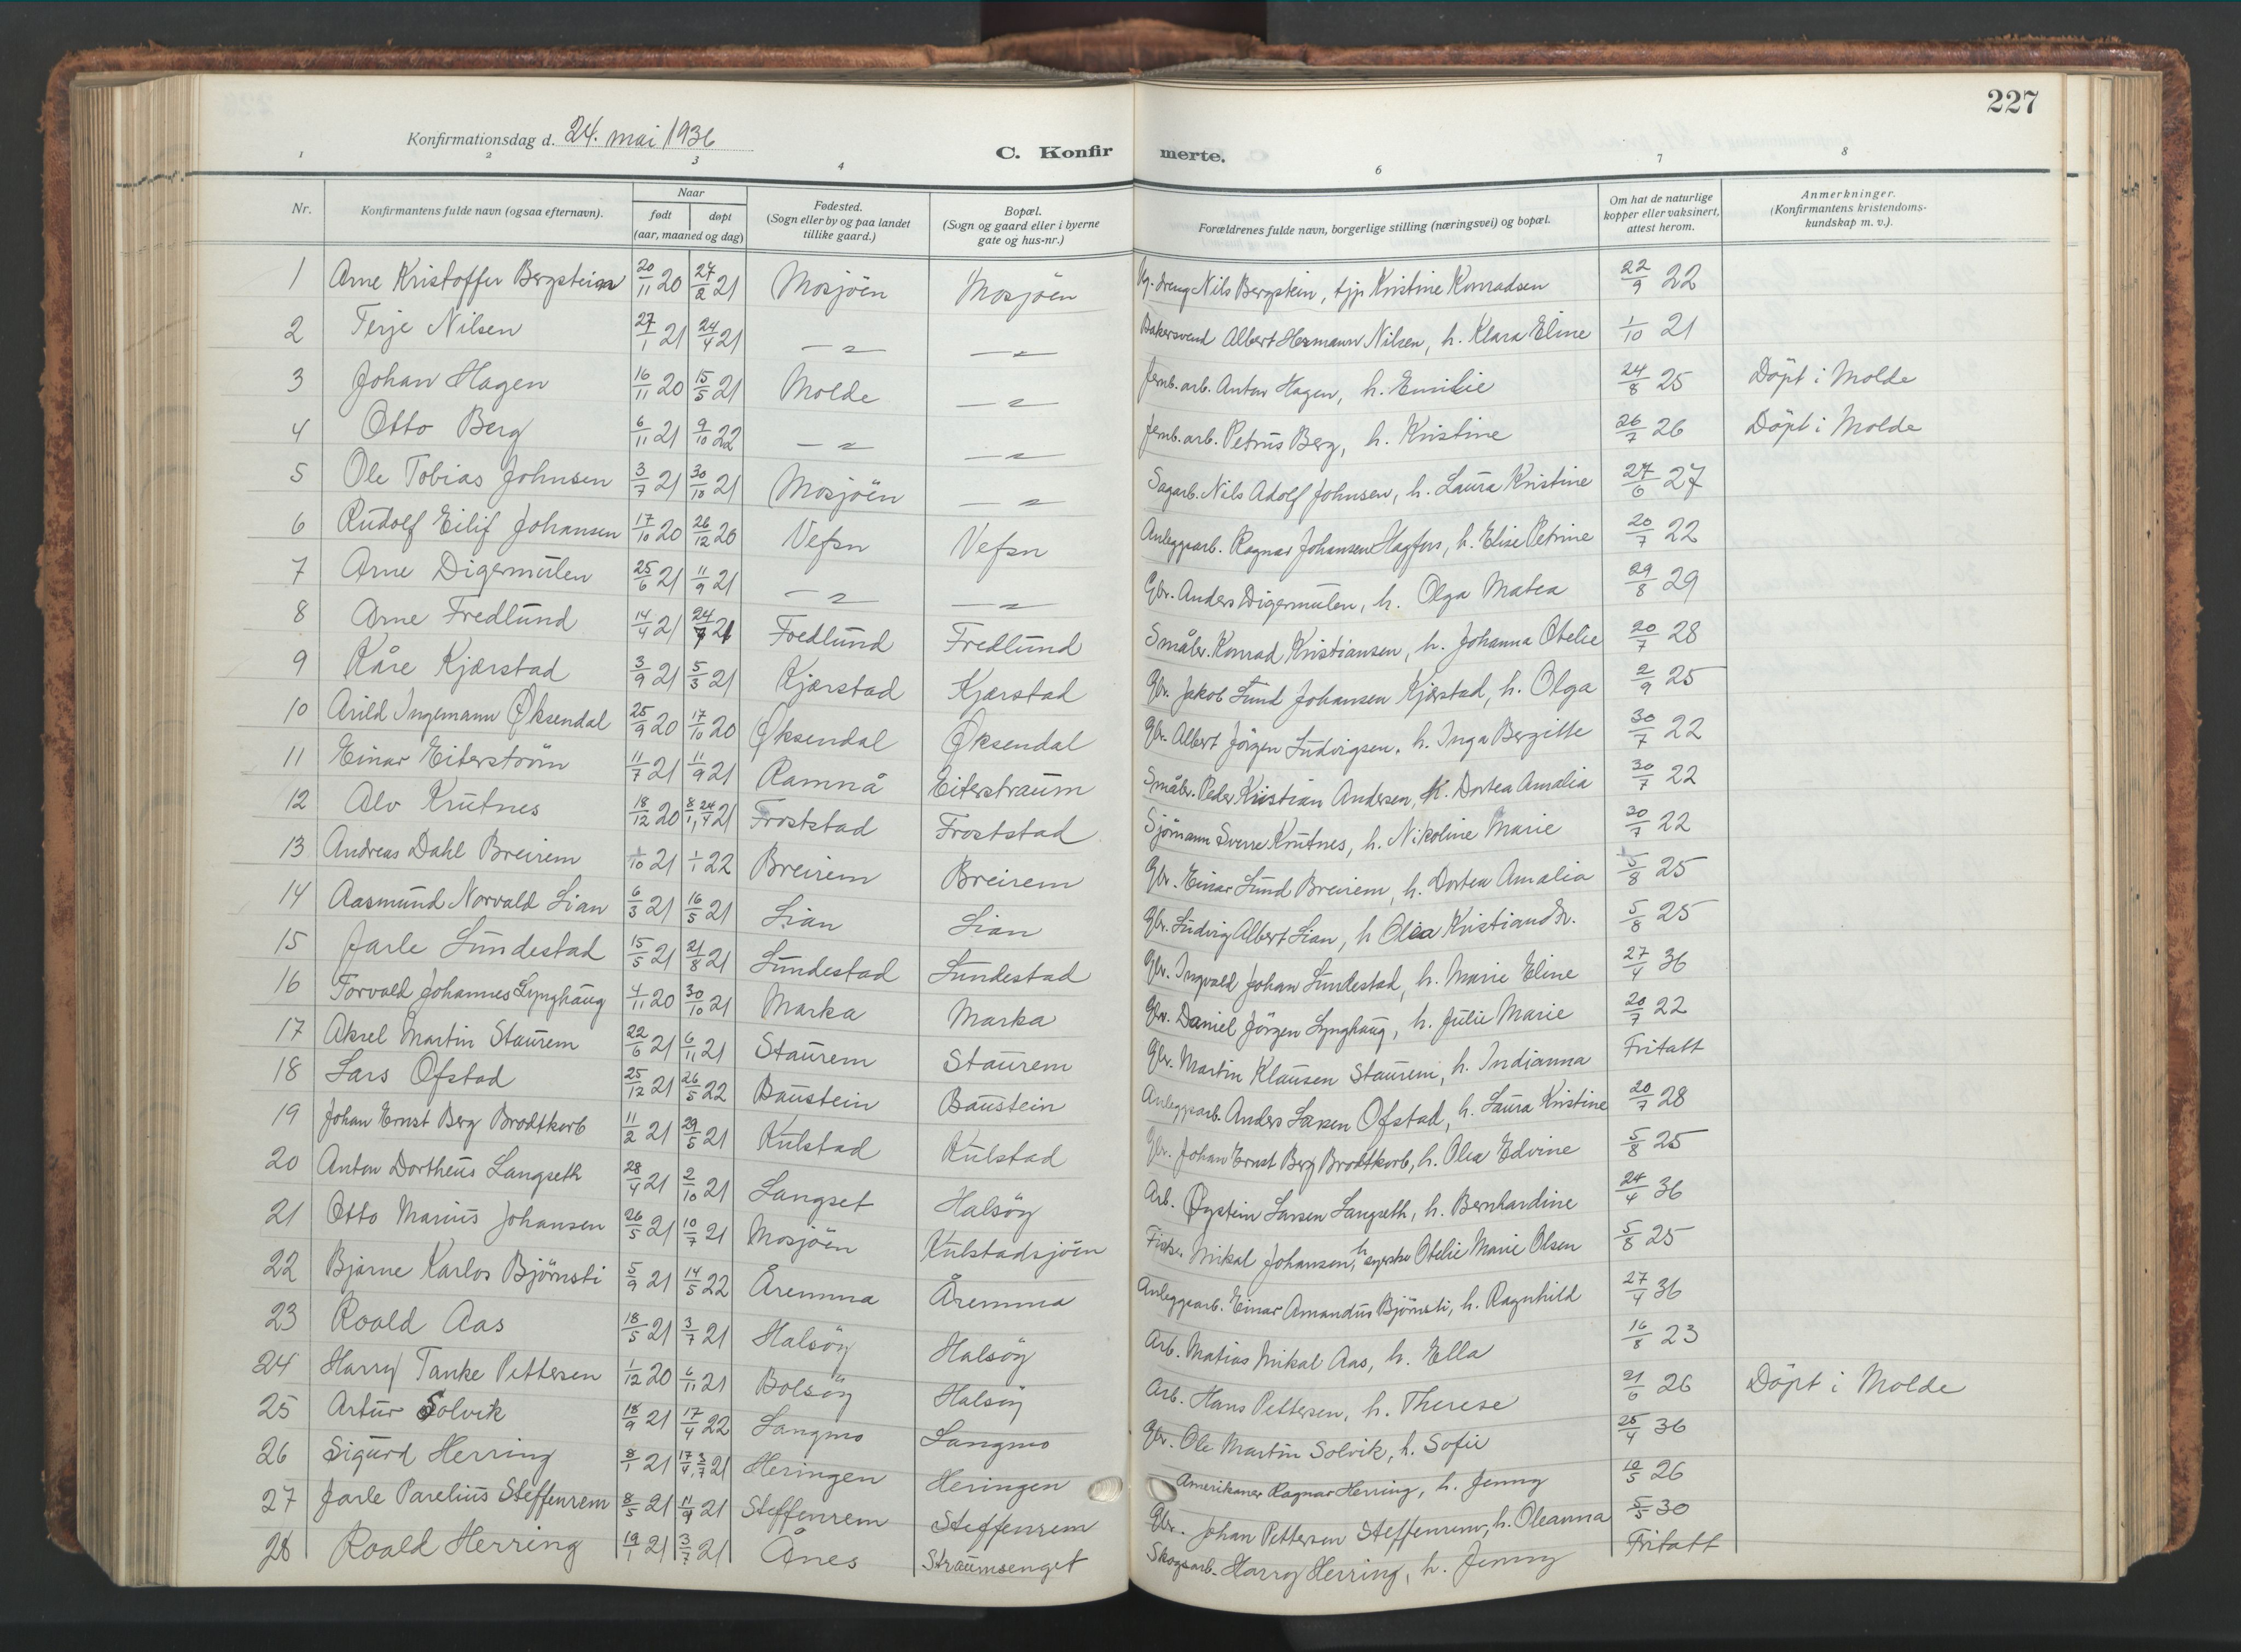 227
Konfirmationsdag d. 24. mai 1936
C. Konfirmerte.
1 2 3 4 6 7 8
Nr. Konfirmantens fulde navn (ogsaa efternavn). Naar født døpt (aar, maaned og dag) Fødested. (Sogn eller by og paa landet tillike gaard.) Bopæl. (Sogn og gaard eller i byerne gate og hus-nr.) Forældrenes fulde navn, borgerlige stilling (næringsvei) og bopæl. Om hat de naturlige kopper eller vaksinert, attest herom. Anmerkninger. (Konfirmantens kristendoms-kundskap m. v.).
1 Arne Kristoffer Bergstein 20/11 20 27/2 21 Mosjöen Mosjöen Nils Bergstein, tjp Kristine Konradsen 22/9 22
2 Terje Nilsen 27/1 21 24/4 21 — " — — " — Bakersvend Albert Hermann Nilsen, h. Klara Eline 1/10 21
3 Johan Hagen 16/11 20 15/5 21 Molde — " — Jernb.arb. Anton Hagen, h. Emilie 24/8 25 Döpt i Molde
4 Otto Berg 6/11 21 9/10 22 — " — — " — Jernb.arb. Petrus Berg, h. Kristine 26/7 26 Döpt i Molde
5 Ole Tobias Johnsen 3/7 21 30/10 21 Mosjöen — " — Sagarb. Nils Adolf Johnsen, h. Laura Kristine 27/6 27
6 Rudolf Eilif Johansen 17/10 20 26/12 20 Vefsn Vefsn Anleggsarb. Ragnar Johansen Hagfors, h. Elise Petrine 20/7 22
7 Arne Digermulen 25/6 21 11/9 21 — " — — " — Gbr. Anders Digermulen, h. Olga Matea 29/8 29
8 Arne Fredlund 14/4 21 24/7 21 Fredlund Fredlund Småbr. Konrad Kristiansen, h. Johanna Otelie 20/7 28
9 Kåre Kjærstad 3/9 21 5/3 21 Kjærstad Kjærstad Gbr. Jakob Lund Johansen Kjærstad, h. Olga 2/9 25
10 Arild Ingemann Øksendal 25/9 20 17/10 20 Øksendal Øksendal Gbr. Albert Jörgen Ludvigsen, h. Inga Bergitte 30/7 22
11 Einar Eiterström 11/7 21 11/9 21 Ramnå Eiterstraum Småbr. Peder Kristian Andersen, h. Dortea Amalia 30/7 22
12 Alv Krutnes 18/12 20 8/1, 24/4 21 Froststad Froststad Sjömann Sverre Krutnes, h. Nikoline Marie 20/7 22
13 Andreas Dahl Breirem 1/10 21 1/1 22 Breirem Breirem Gbr. Einar Lund Breirem, h. Dortea Amalia 5/8 25
14 Aasmund Norvald Lian 6/3 21 16/5 21 Lian Lian Gbr. Ludvig Albert Lian, h Olea Kristiandtr. 5/8 25
15 Jarle Lundestad 15/5 21 21/8 21 Lundestad Lundestad Gbr. Ingvald Johan Lundestad, h. Marie Eline 27/4 36
16 Torvald Johannes Lynghaug 4/11 20 30/10 21 Marka Marka Gbr. Daniel Jörgen Lynghaug, h. Julie Marie 20/7 22
17 Aksel Martin Staurem 22/6 21 6/11 21 Staurem Staurem Gbr. Martin Klausen Staurem, h. Indianna Fritatt
18 Lars Ofstad 25/12 21 26/5 22 Baustein Baustein Anleggsarb. Anders Larsen Ofstad, h. Laura Kristine 20/7 28
19 Johan Ernst Berg Brodtkorb 11/2 21 29/5 21 Kulstad Kulstad Gbr. Johan Ernst Berg Brodtkorb, h. Olea Edvine 5/8 25
20 Anton Dortheus Langseth 28/4 21 2/10 21 Langset Halsöy Arb. Øystein Larsen Langseth, h. Bernhardine 24/4 36
21 Otto Marius Johansen 26/5 21 10/7 21 Mosjöen Kulstadsjöen Fisker Mikal Johansen, h syerske Otelie Marie Olsen 5/8 25
22 Bjarne Karlos Björnsti 5/9 21 14/5 22 Åremma Åremma Anleggsarb. Einar Amandus Björnsti, h. Ragnhild 27/4 36
23 Roald Aas 18/5 21 3/7 21 Halsöy Halsöy Arb. Matias Mikal Aas, h. Ella 16/8 23
24 Harry Tanke Pettersen 1/12 20 6/11 21 Bolsöy Halsöy Arb. Hans Pettersen, h. Therese 21/6 26 Döpt i Molde
25 Artur Solvik 18/9 21 17/4 22 Langmo Langmo Gbr. Ole Martin Solvik, h. Sofie 25/4 36
26 Sigurd Herring 8/1 21 17/4, 3/7 21 Heringen Heringen Amerikaner Ragnar Herring, h. Jenny 10/5 26
27 Jarle Parelius Steffenrem 8/5 21 11/9 21 Steffenrem Steffenrem Gbr. Johan Pettersen Steffenrem, h. Oleanna 5/5 30
28 Roald Herring 19/1 21 3/7 21 Ånes Straumsenget Skogsarb. Harry Herring, h. Jenny Fritatt